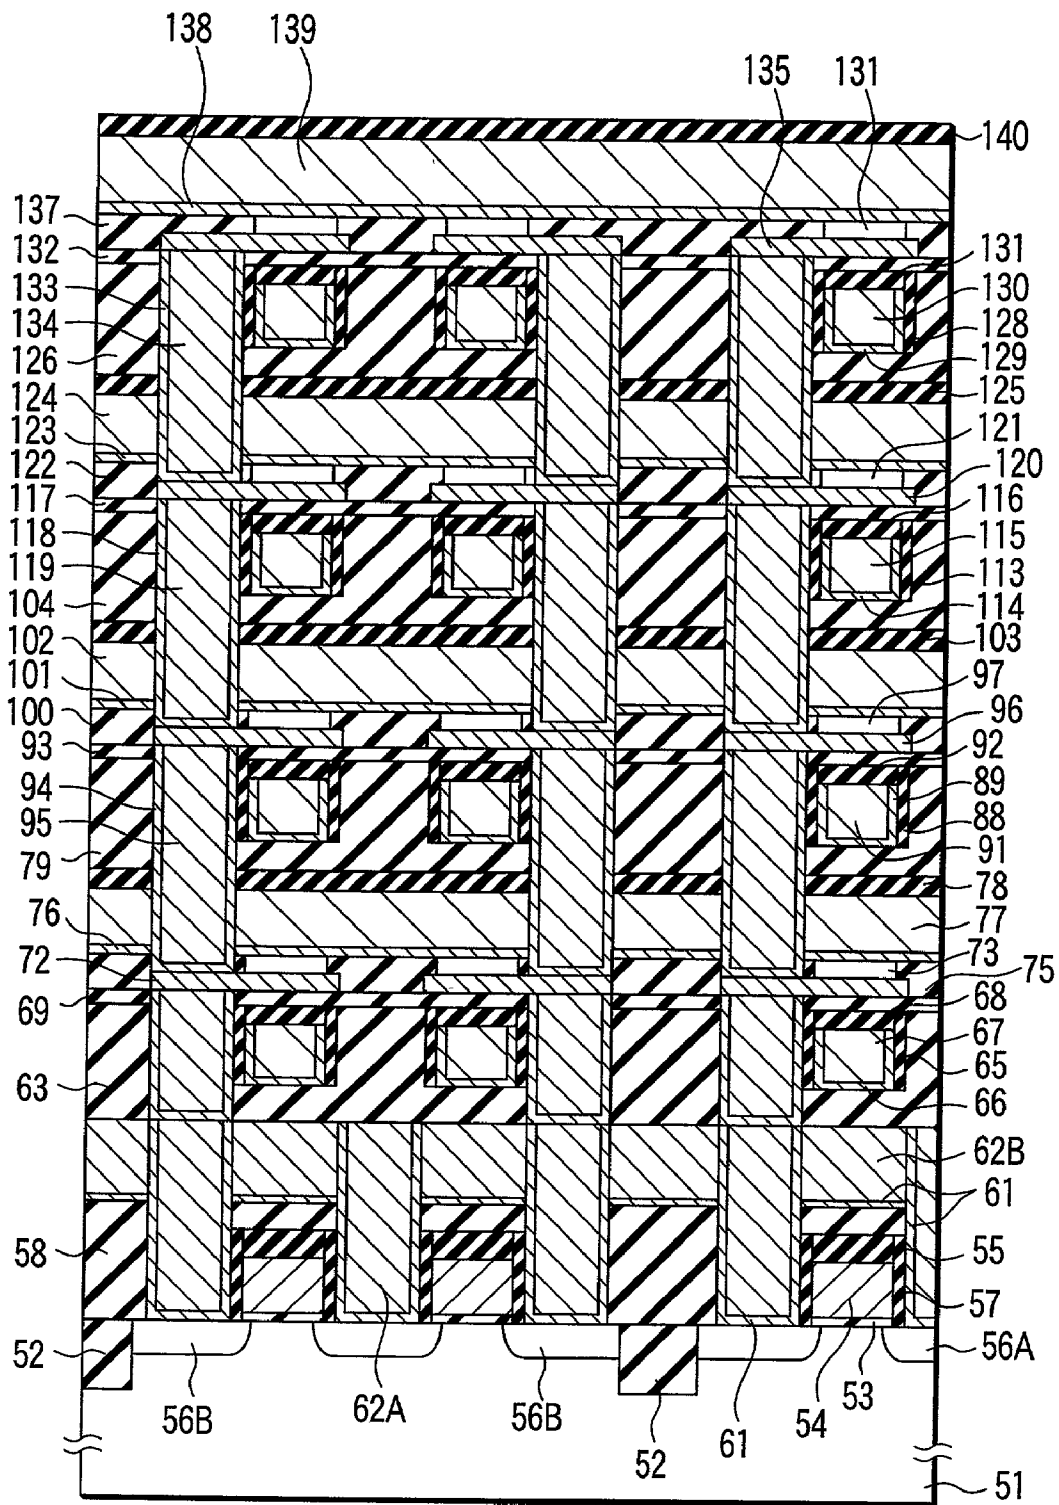 138 139
135 131
140
137
132
133
134
126
124
123
122
117
118
119
104
102
101
100
93
94
95
79
76
72
69
63
58
52
131
130
128
129
125
121
120
116
115
113
114
103
97
96
92
89
88
91
78
77
73
75
68
67
65
66
62B
61
55
57
56A
56B 62A 56B 52 61 54 53
51